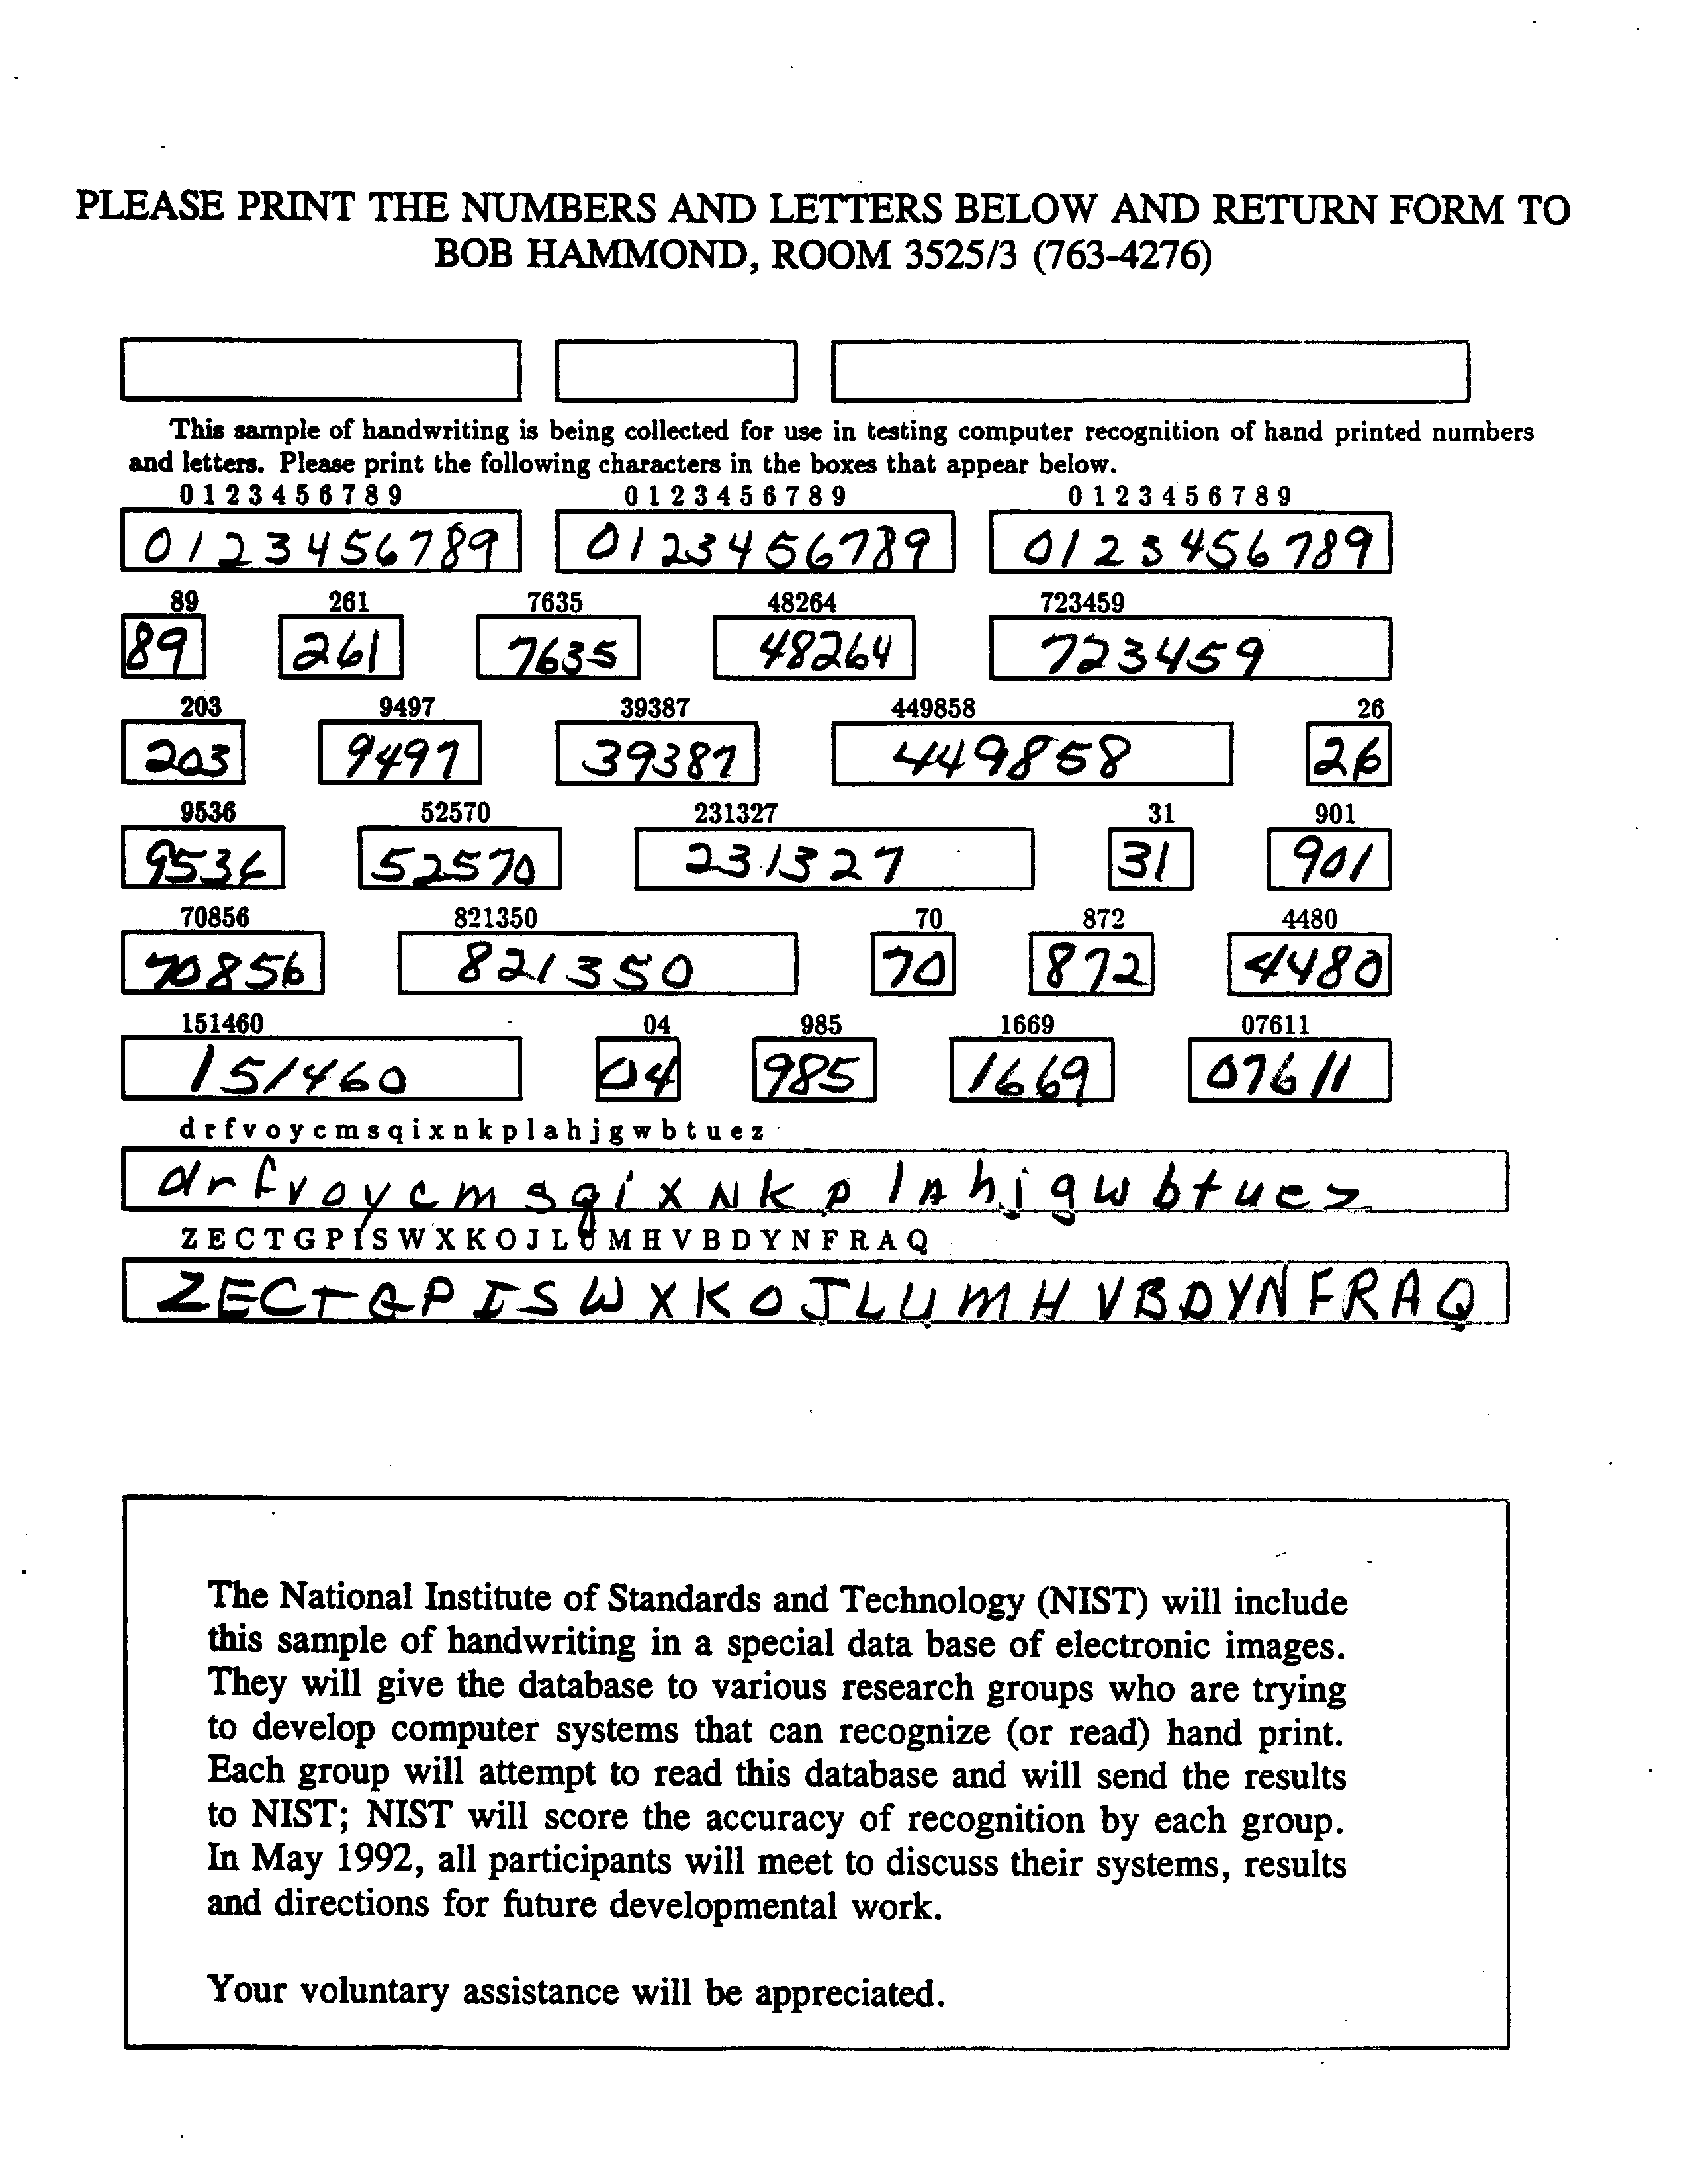 PLEASE PRINT THE NUMBERS AND LETTERS BELOW AND RETURN FORM TO
BOB HAMMOND, ROOM 3525/3 (763-4276)
This sample of handwriting is being collected for use in testing computer recognition of hand printed numbers
and letters. Please print the following characters in the boxes that appear below.
0 1 2 3 4 5 6 7 8 9 0 1 2 3 4 5 6 7 8 9 0 1 2 3 4 5 6 7 8 9
0123456789 0123456789 0123456789
89 261 7635 48264 723459
89 261 7635 48264 723459
203 9497 39387 449858 26
203 9497 39387 449858 26
9536 52570 231327 31 901
9536 52570 231327 31 901
70856 821350 70 872 4480
70856 821350 70 872 4480
151460 04 985 1669 07611
151460 04 985 1669 07611
d r f v o y c m s q i x n k p l a h j g w b t u e z
d r f v o y c m s q i x N k p l A h j g w b t u e z
Z E C T G P I S W X K O J L U M H V B D Y N F R A Q
Z E C T G P I S W X K O J L U M H V B D Y N F R A Q
The National Institute of Standards and Technology (NIST) will include
this sample of handwriting in a special data base of electronic images.
They will give the database to various research groups who are trying
to develop computer systems that can recognize (or read) hand print.
Each group will attempt to read this database and will send the results
to NIST; NIST will score the accuracy of recognition by each group.
In May 1992, all participants will meet to discuss their systems, results
and directions for future developmental work.
Your voluntary assistance will be appreciated.